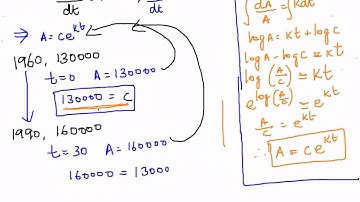 dt
dt
⇒ A = ce^{kt}
1960, 130000
t = 0 A = 130000
130000 = C
1990, 160000
t = 30 A = 160000
160000 = 13000
∫ dA/A = ∫ kdt
log A = kt + log C
log A - log C = kt
log (A/C) = kt
e^{log (A/C)} = e^{kt}
A/C = e^{kt}
∴ A = Ce^{kt}